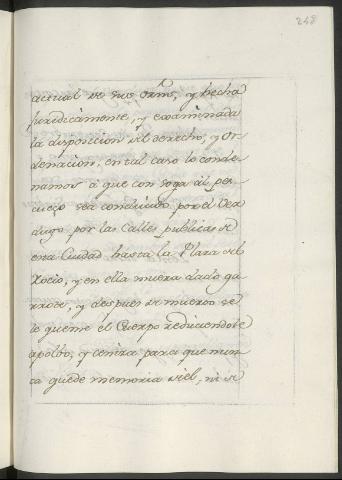 248
actual de sus Orñs, y hecha
juridicamente, y examinada
la disposicion del derecho, y Or
denacion, en tal caso lo conde
namos a que con soga al pes
cuezo sea conducido por el Ver
dugo por las Calles publicas de
esta Ciudad hasta la Plaza del
Rocio, y en ella muera dado ga
rrote, y despues de muerto se
le queme el Cuerpo reduciendole
a polbo, y ceniza para que nun
ca quede memoria del, ni de